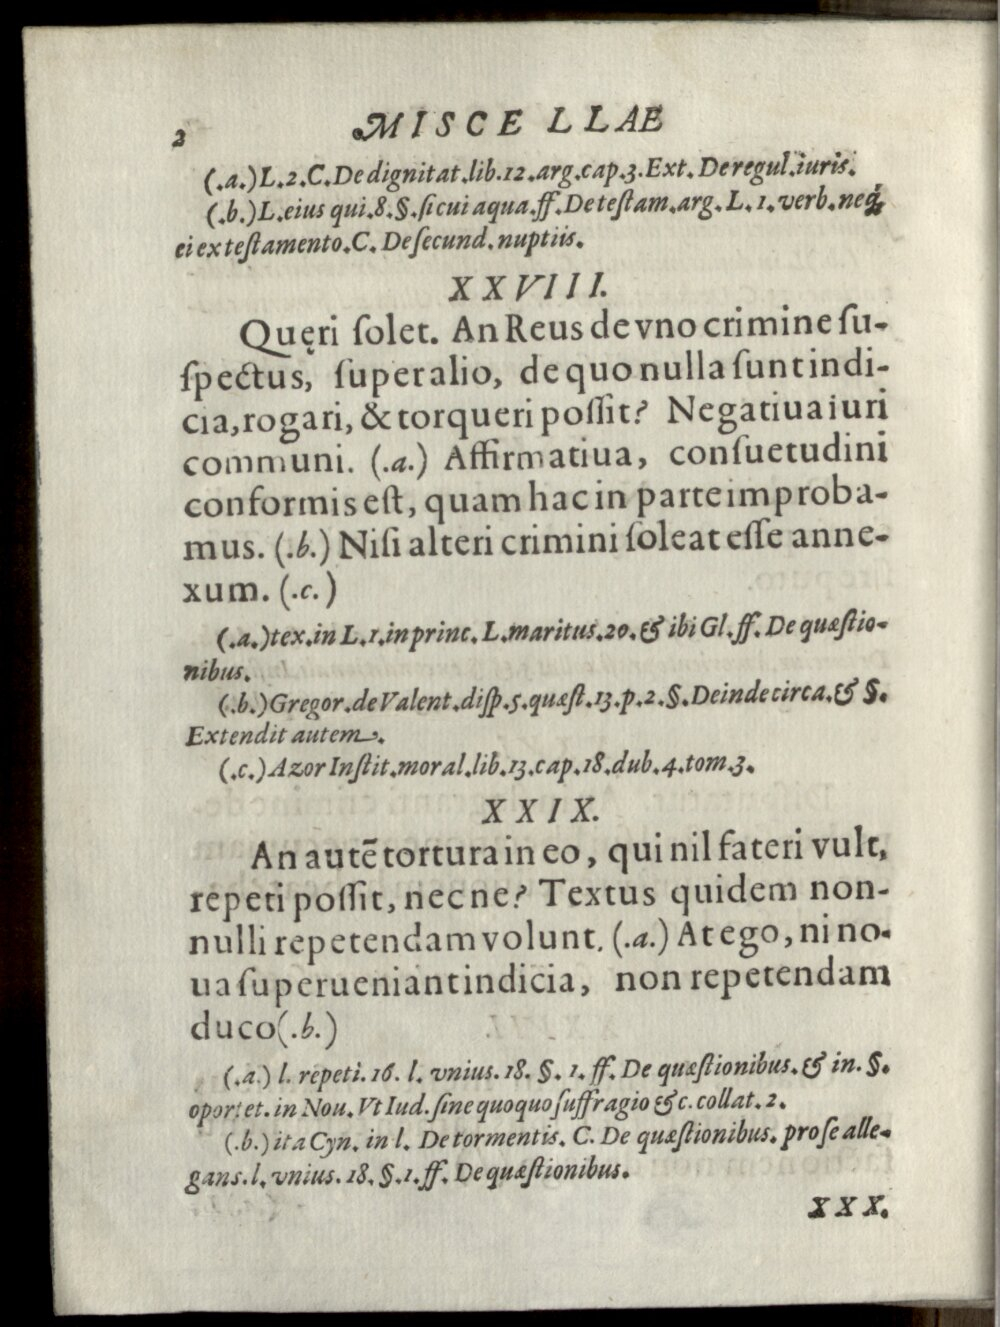 2 MISCELLAE
(.a.) L. 2. C. De dignitat. lib. 12. arg. cap. 3. Ext. De regul. iuris.
(.b.) L. eius qui. 8. §. si cui aqua. ff. De testam. arg. L. 1. verb. neq́;
ei ex testamento. C. De secund. nuptiis.
XXVIII.
Quęri solet. An Reus de vno crimine su-
spectus, super alio, de quo nulla sunt indi-
cia, rogari, & torqueri possit? Negatiua iuri
communi. (.a.) Affirmatiua, consuetudini
conformis est, quam hac in parte improba-
mus. (.b.) Nisi alteri crimini soleat esse anne-
xum. (.c.)
(.a.) tex. in L. 1. in princ. L. maritus. 20. & ibi Gl. ff. De quæstio-
nibus.
(.b.) Gregor. de Valent. disp. 5. quæst. 13. p. 2. §. Deinde circa. & §.
Extendit autem.
(.c.) Azor Instit. moral. lib. 13. cap. 18. dub. 4. tom. 3.
XXIX.
An autē tortura in eo, qui nil fateri vult,
repeti possit, nec ne? Textus quidem non-
nulli repetendam volunt. (.a.) At ego, ni no-
ua superueniant indicia, non repetendam
duco (.b.)
(.a.) l. repeti. 16. l. vnius. 18. §. 1. ff. De quæstionibus. & in. §.
oportet. in Nou. Vt Iud. sine quoquo suffragio &c. collat. 2.
(.b.) ita Cyn. in l. De tormentis. C. De quæstionibus. pro se alle-
gans. l. vnius. 18. §. 1. ff. De quæstionibus.
XXX.